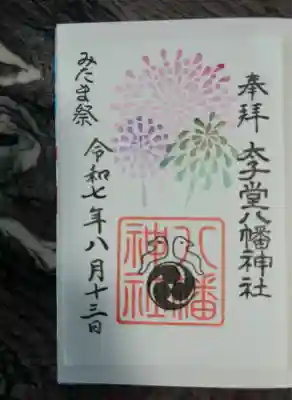 奉拝
太子堂八幡神社
みたま祭
令和七年八月十三日
八幡
神社